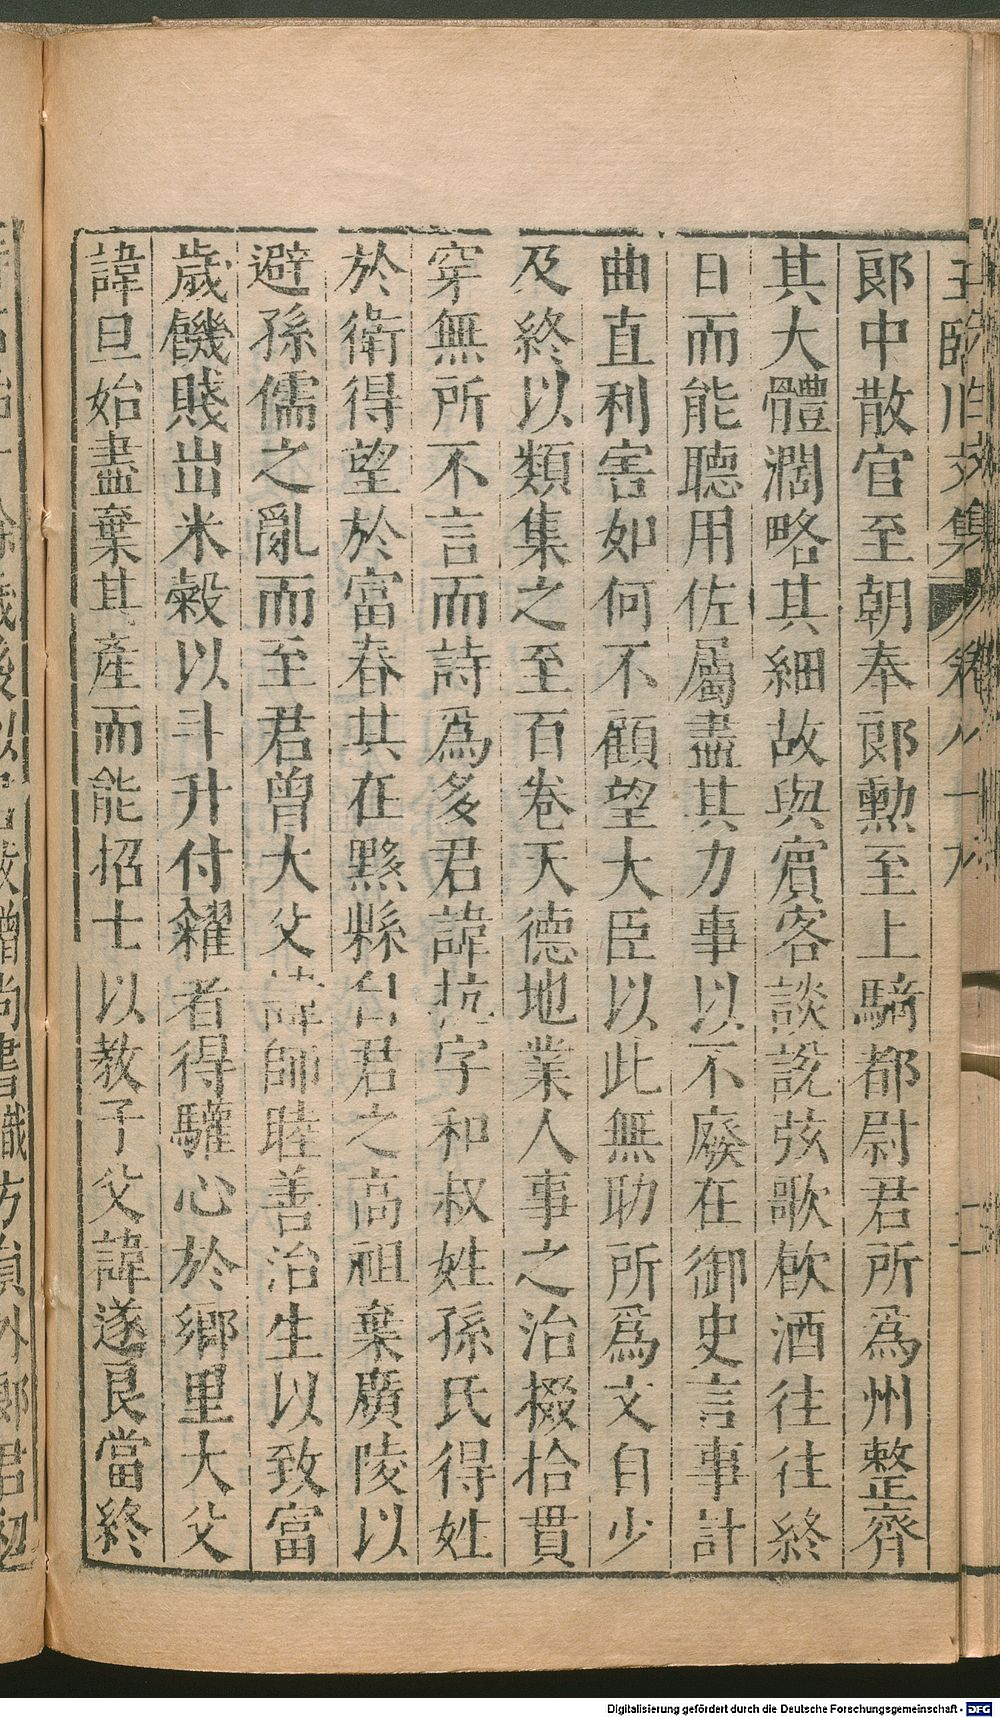 王臨川文集 卷八十九
郎中散官至朝奉郎勲至上騎都尉君所爲州整齊
其大體濶略其細故與賔客談說弦歌飲酒往往終
日而能聽用佐屬盡其力事以不廢在御史言事計
曲直利害如何不顧望大臣以此無助所爲文自少
及終以類集之至百卷天德地業人事之治掇拾貫
穿無所不言而詩爲多君諱抗字和叔姓孫氏得姓
於衛得望於富春其在黟縣自君之高祖棄廣陵以
避孫儒之亂而至君曾大父諱師睦善治生以致富
歳饑賤出米榖以斗升付糴者得驩心於鄉里大父
諱旦始盡棄其產而能招士以教子父諱遂良當終
Digitalisierung gefördert durch die Deutsche Forschungsgemeinschaft - DFG